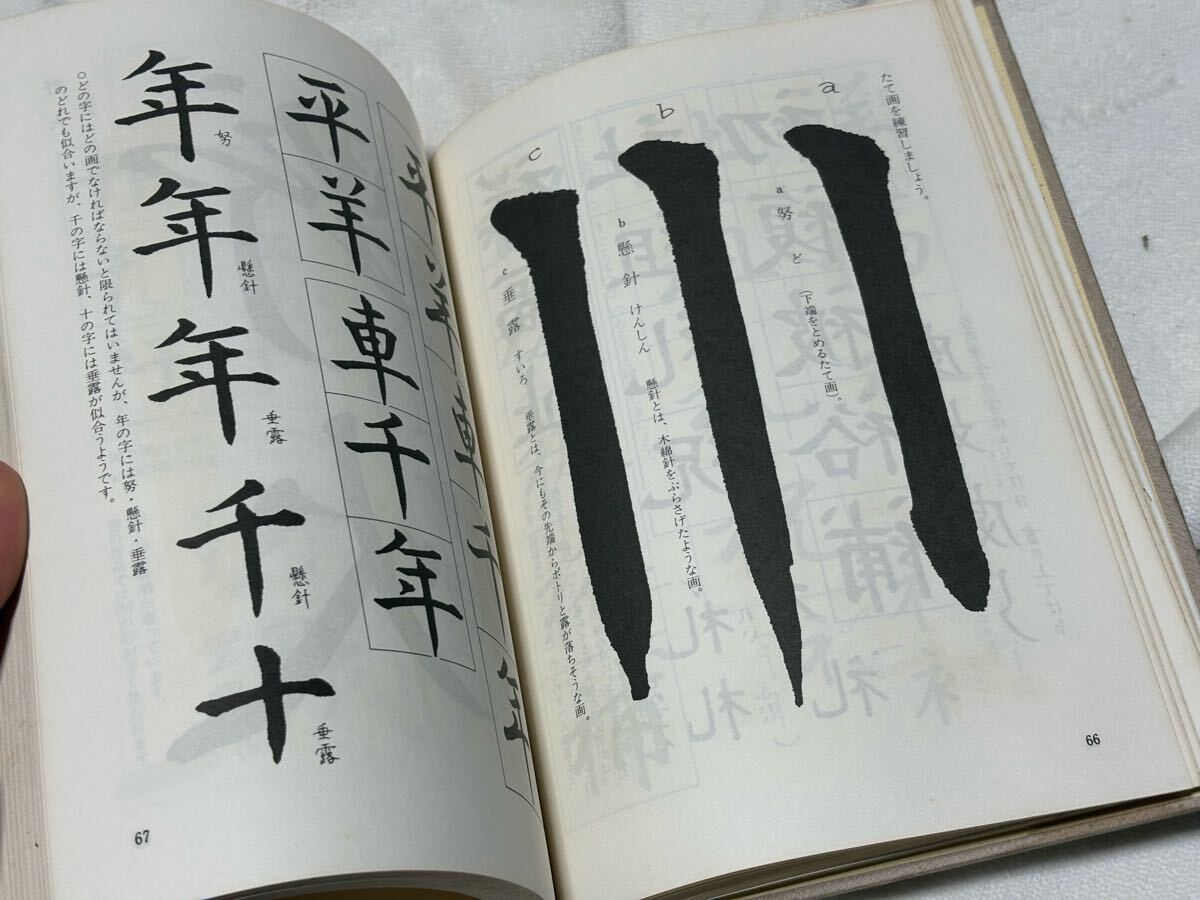 たて画を練習しましょう。
a
a 努 ど (下端をとめるたて画)。
b
b 懸針 けんしん 懸針とは、木綿針をぶらさげたような画。
c
c 垂露 すいろ 垂露とは、今にもその先端からポトリと露が落ちそうな画。
66
平羊車千年
平羊車千年
年 努
年 懸針
年 垂露
千 懸針
十 垂露
○どの字にはどの画でなければならないと限られてはいませんが、年の字には努・懸針・垂露
のどれでも似合いますが、千の字には懸針、十の字には垂露が似合うようです。
67